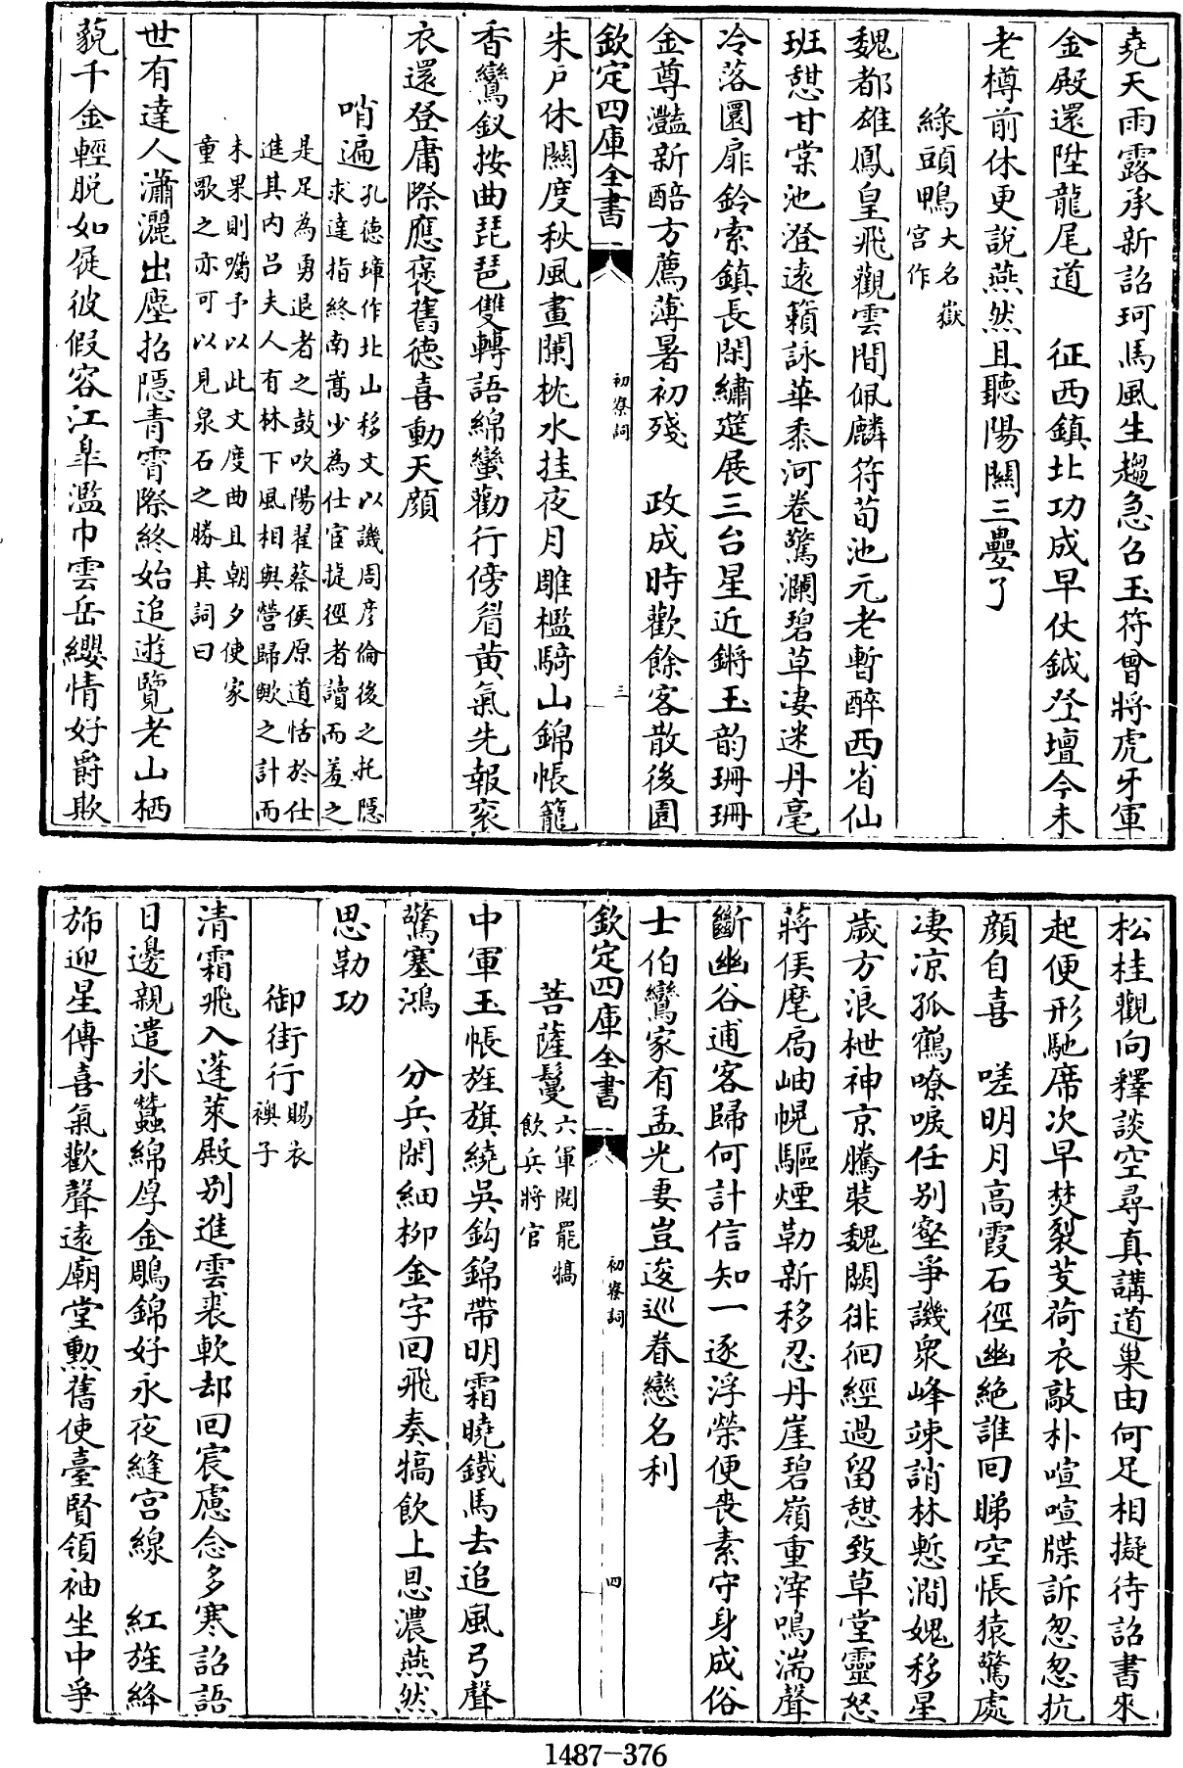 堯天雨露承新詔珂馬風生趨急召玉符曾將虎牙軍
金殿還陞龍尾道　征西鎮北功成早仗鉞登壇今未
老樽前休更說燕然且聽陽關三疊了
綠頭鴨大名嶽
宮作
魏都雄鳳皇飛觀雲間佩麟符荀池元老暫醉西省仙
班憇甘棠池澄遠籟詠華黍河卷驚瀾碧草凄迷丹毫
冷落圜扉鈴索鎮長閑繡筵展三台星近鏘玉韵珊珊
金尊灩新醅方薦薄暑初殘　政成時歡餘客散後園
欽定四庫全書
初寮詞
三
朱戸休關度秋風畫闌枕水挂夜月雕檻騎山錦帳籠
香鸞釵按曲琵琶雙轉語綿蠻勸行傍眉黄氣先報衮
衣還登庸際應褒舊德喜動天顔
哨遍孔德璋作北山移文以譏周彦倫後之托隱
求達指終南嵩少為仕宦捷徑者讀而羞之
是足為勇退者之鼓吹陽翟蔡侯原道恬於仕
進其内吕夫人有林下風相與營歸歟之計而
未果則囑予以此文度曲且朝夕使家
童歌之亦可以見泉石之勝其詞曰
世有達人瀟灑出塵招隱青霄際終始追遊覽老山栖
藐千金輕脱如屣彼假容江臯濫巾雲岳纓情好爵欺
松桂觀向釋談空尋真講道巢由何足相擬待詔書來
起便形馳席次早焚裂芰荷衣敲朴喧喧牒訴怱怱抗
顔自喜　嗟明月高霞石徑幽絶誰回睇空悵猿驚處
凄凉孤鶴嘹唳任别壑爭譏衆峰竦誚林慙澗媿移星
歲方浪栧神京騰裝魏闕徘徊經過留憇致草堂靈怒
蔣侯麾扃岫幌驅煙勒新移忍丹崖碧嶺重滓鳴湍聲
斷幽谷逋客歸何計信知一逐浮榮便喪素守身成俗
士伯鸞家有孟光妻豈逡巡眷戀名利
欽定四庫全書
初寮詞
四
菩薩鬘六軍閱罷犒
飲兵將官
中軍玉帳旌旗繞吳鈎錦帶明霜曉鐵馬去追風弓聲
驚塞鴻　分兵閑細柳金字回飛奏犒飲上恩濃燕然
思勒功
御街行賜衣
襖子
清霜飛入蓬萊殿别進雲裘軟却回宸慮念多寒詔語
日邊親遣氷蠶綿厚金鵰錦好永夜縫宫線　紅旌絳
斾迎星傳喜氣歡聲遠廟堂勲舊使臺賢領袖坐中爭
1487-376